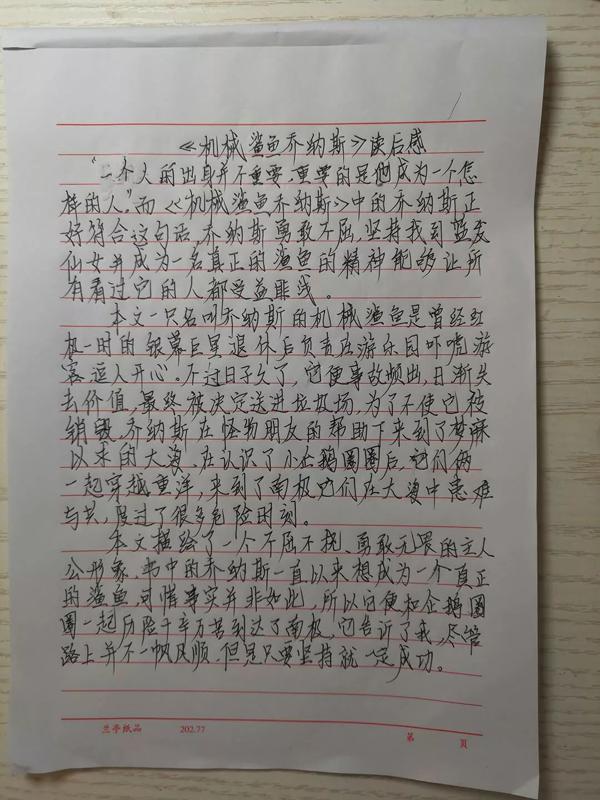 《机械鲨鱼乔纳斯》读后感
“一个人的出身并不重要,重要的是他成为一个怎
样的人。”而《机械鲨鱼乔纳斯》中的乔纳斯正
好符合这句话,乔纳斯勇敢不屈,坚持找到蓝发
仙女并成为一名真正的鲨鱼的精神能够让所
有看过它的人都受益匪浅。
本文一只名叫乔纳斯的机械鲨鱼是曾经红
极一时的银幕巨星退休后负责在游乐园吓唬游
客逗人开心。不过日子久了,它便事故频出,日渐失
去价值,最终被决定送进垃圾场,为了不使它被
销毁,乔纳斯在怪物朋友的帮助下来到了梦寐
以求的大海,在认识了小企鹅圈圈后,它们俩
一起穿越重洋,来到了南极它们在大海中患难
与共,度过了很多危险时刻。
本文描绘了一个不屈不挠、勇敢无畏的主人
公形象,书中的乔纳斯一直以来想成为一个真正
的鲨鱼,可惜事实并非如此,所以它便和企鹅圈
圈一起历险千辛万苦到达了南极,它告诉了我,尽管
路上并不一帆风顺,但是只要坚持就一定成功。
兰亭纸品 202.77 第 页